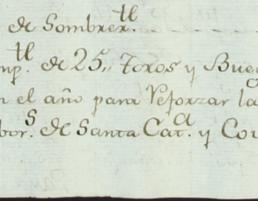 de Sombrer.ll
mp.ll de 25,, Toros y Bue
n el año para Reforzar la
bor.s de Santa Cat.a y Co